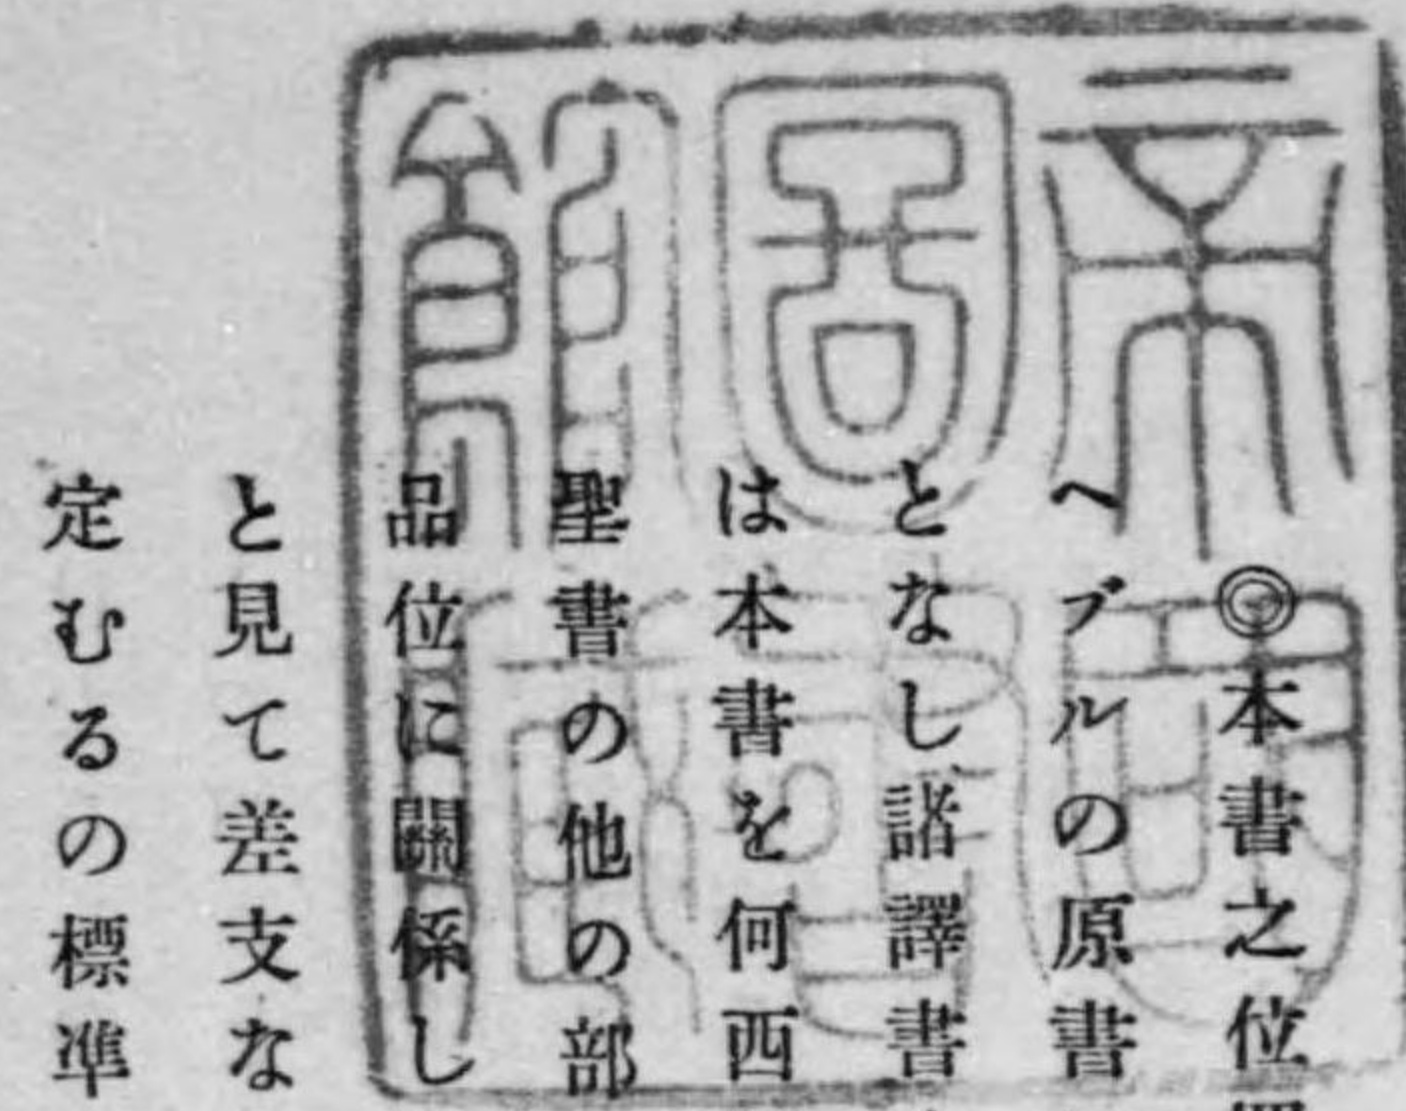 帝圖館
◎本書之位
ヘブルの原書
となし諸譯書
は本書を何西
聖書の他の部
品位に關係し
と見て差支な
定むるの標準